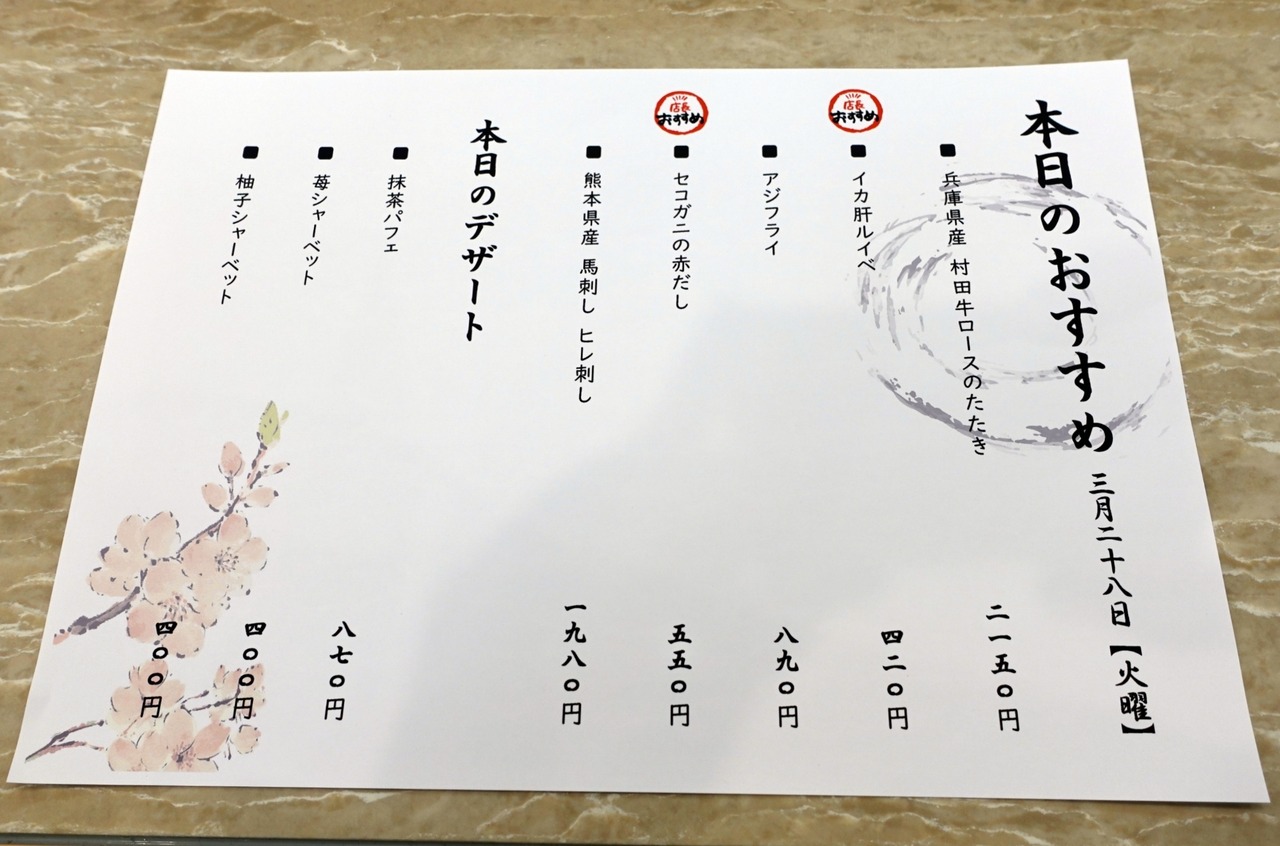 本日のおすすめ 三月二十八日【火曜】
■ 兵庫県産 村田牛ロースのたたき 二一五〇円
店長おすすめ
■ イカ肝ルイベ 四二〇円
■ アジフライ 八九〇円
店長おすすめ
■ セコガニの赤だし 五五〇円
■ 熊本県産 馬刺し ヒレ刺し 一九八〇円
本日のデザート
■ 抹茶パフェ 八七〇円
■ 苺シャーベット 四〇〇円
■ 柚子シャーベット 四〇〇円